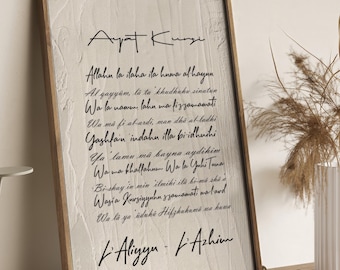 Ayat Kursi
Allahu la ilaha ila huwa al hayyu
Al qayyum, la ta'khudhuhu sinatun
Wa la nawm lahu ma fis samawati
Wa mā fi al-ardi, man dhā al-ladhi
Yashfau indahu illa bi-idhnihi
Ya'lamu mā bayna aydihim
Wa ma khalfahum Wa la Yuhi Tuna
Bi-shay'in min 'ilmihi ilā bi-mā shā'a
Wasia Kursiyyuhu s samawati wa lard
Wa lā ya'ūduhū Hifzhuhumā wa huwa
L'Aliyyu - L'Azhim